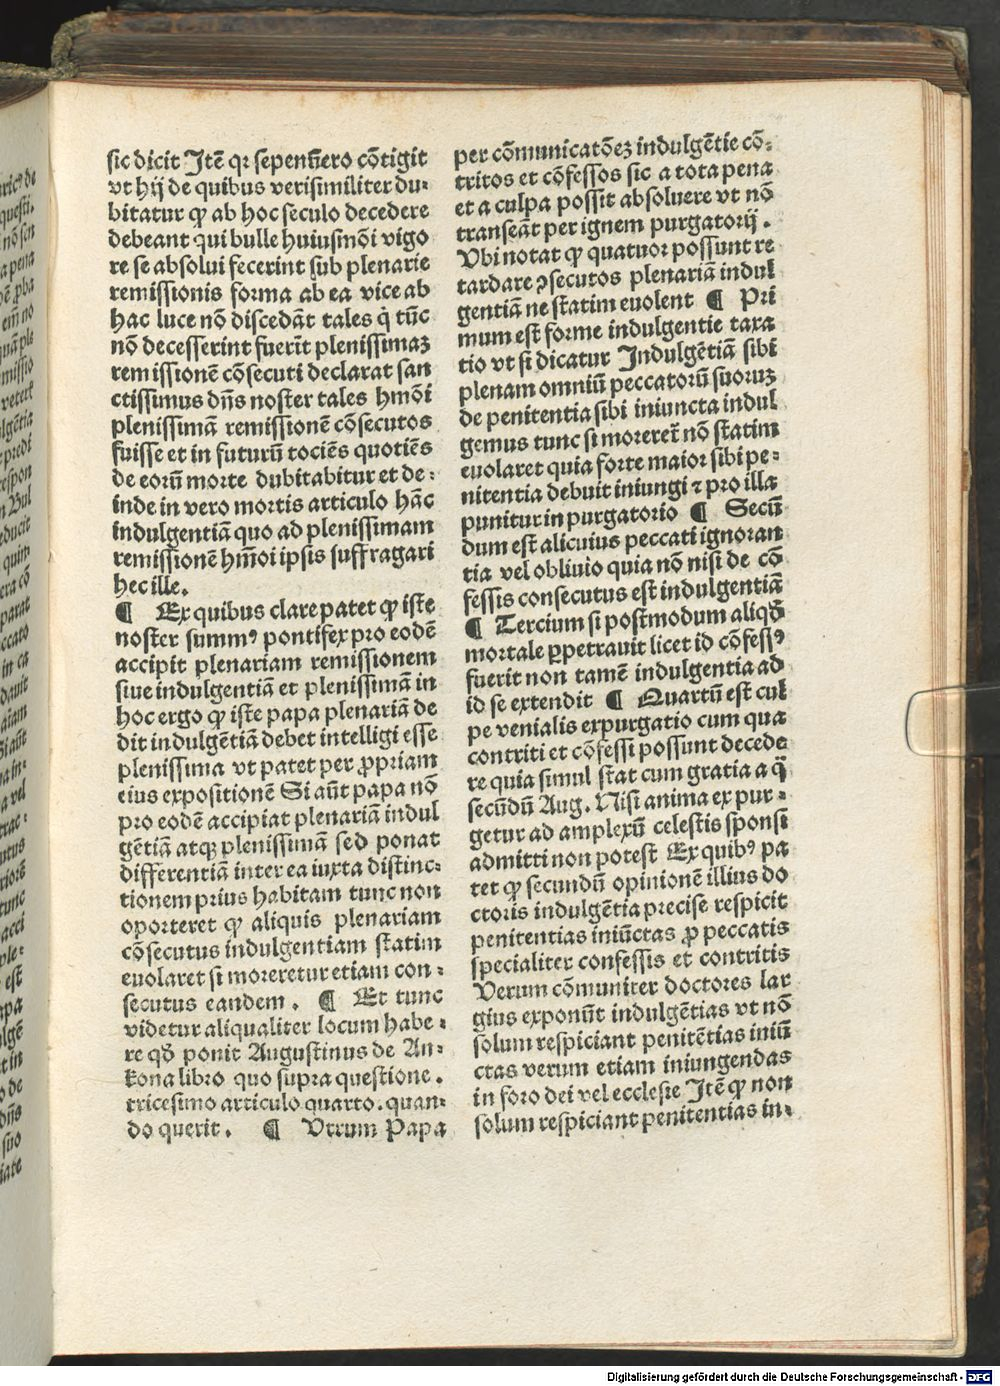 sic dicit Itē qꝛ sepenūero cōtigit
vt hij de quibus verisimiliter du-
bitatur ꝙ ab hoc seculo decedere
debeant qui bulle huiusmōi vigo
re se absolui fecerint sub plenarie
remissionis forma ab ea vice ab
hac luce nō discedāt tales q̇ tūc
nō decesserint fuerīt plenissimaꝫ
remissionē cōsecuti declarat san
ctissimus dn̄s noster tales hmōi
plenissimā remissionē cōsecutos
fuisse et in futurū tociēs quotiēs
de eorū morte dubitabitur et de-
inde in vero mortis articulo hāc
indulgentiā quo ad plenissimam
remissionē hm̄oi ipsis suffragari
hec ille.
¶ Ex quibus clare patet ꝙ iste
noster summꝰ pontifex pro eodē
accipit plenariam remissionem
siue indulgentiā et plenissimā in
hoc ergo ꝙ iste papa plenariā de
dit indulgētiā debet intelligi esse
plenissima vt patet per ꝓpriam
eius expositionē Si aūt papa nō
pro eodē accipiat plenariā indul
gētiā atqꝫ plenissimā sed ponat
differentiā inter ea iuxta distinc-
tionem prius habitam tunc non
oporteret ꝙ aliquis plenariam
cōsecutus indulgentiam statim
euolaret si moreretur etiam con-
secutus eandem. ¶ Et tunc
videtur aliqualiter locum habe-
re qđ ponit Augustinus de An-
kona libro quo supra questione.
tricesimo articulo quarto. quan-
do querit. ¶ Vtrum Papa
per cōmunicatōeꝫ indulgētie cō-
tritos et cōfessos sic a tota pena
et a culpa possit absoluere vt nō
transeāt per ignem purgatorij.
Vbi notat ꝙ quatuor possunt re
tardare ꝯsecutos plenariā indul
gentiā ne statim euolent ¶ Pri
mum est forme indulgentie taxa
tio vt si dicatur Indulgētiā sibi
plenam omniū peccatorū suoruꝫ
de penitentia sibi iniuncta indul
gemus tunc si morereť nō statim
euolaret quia forte maior sibi pe-
nitentia debuit iniungi ⁊ pro illa
punitur in purgatorio ¶ Secū
dum est alicuius peccati ignoran
tia vel obliuio quia nō nisi de cō
fessis consecutus est indulgentiā
¶ Tercium si postmodum aliqđ
mortale ꝑpetrauit licet id cōfessꝰ
fuerit non tamē indulgentia ad
id se extendit ¶ Quartū est cul
pe venialis expurgatio cum qua
contriti et cōfessi possunt decede
re quia simul stat cum gratia a q̄
secūdū Aug. Nisi anima ex pur-
getur ad amplexū celestis sponsi
admitti non potest Ex quibꝰ pa
tet ꝙ secundū opinionē illius do
ctoris indulgētia precise respicit
penitentias iniūctas ꝓ peccatis
specialiter confessis et contritis
Verum cōmuniter doctores lar
gius exponūt indulgētias vt nō
solum respiciant penitētias iniū
ctas verum etiam iniungendas
in foro dei vel ecclesie Itē ꝙ non
solum respiciant penitentias in-
Digitalisierung gefördert durch die Deutsche Forschungsgemeinschaft - DFG